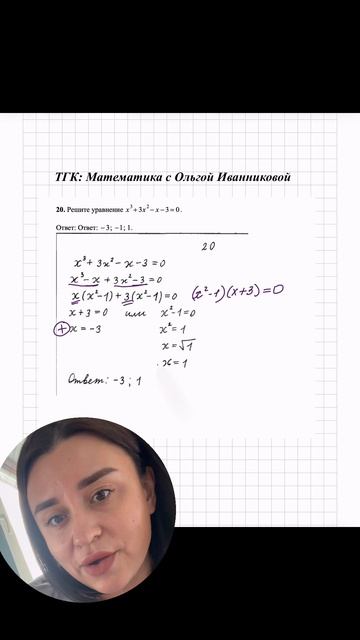 ТГК: Математика с Ольгой Иванниковой
20. Решите уравнение x³+3x²−x−3=0.
Ответ: Ответ: −3; −1; 1.
20
x³+3x²−x−3=0
x³−x+3x²−3=0
x(x²−1)+3(x²−1)=0 (x²−1)(x+3)=0
x+3=0 или x²−1=0
+ x=−3 x²=1
x=√1
x=1
Ответ: −3; 1